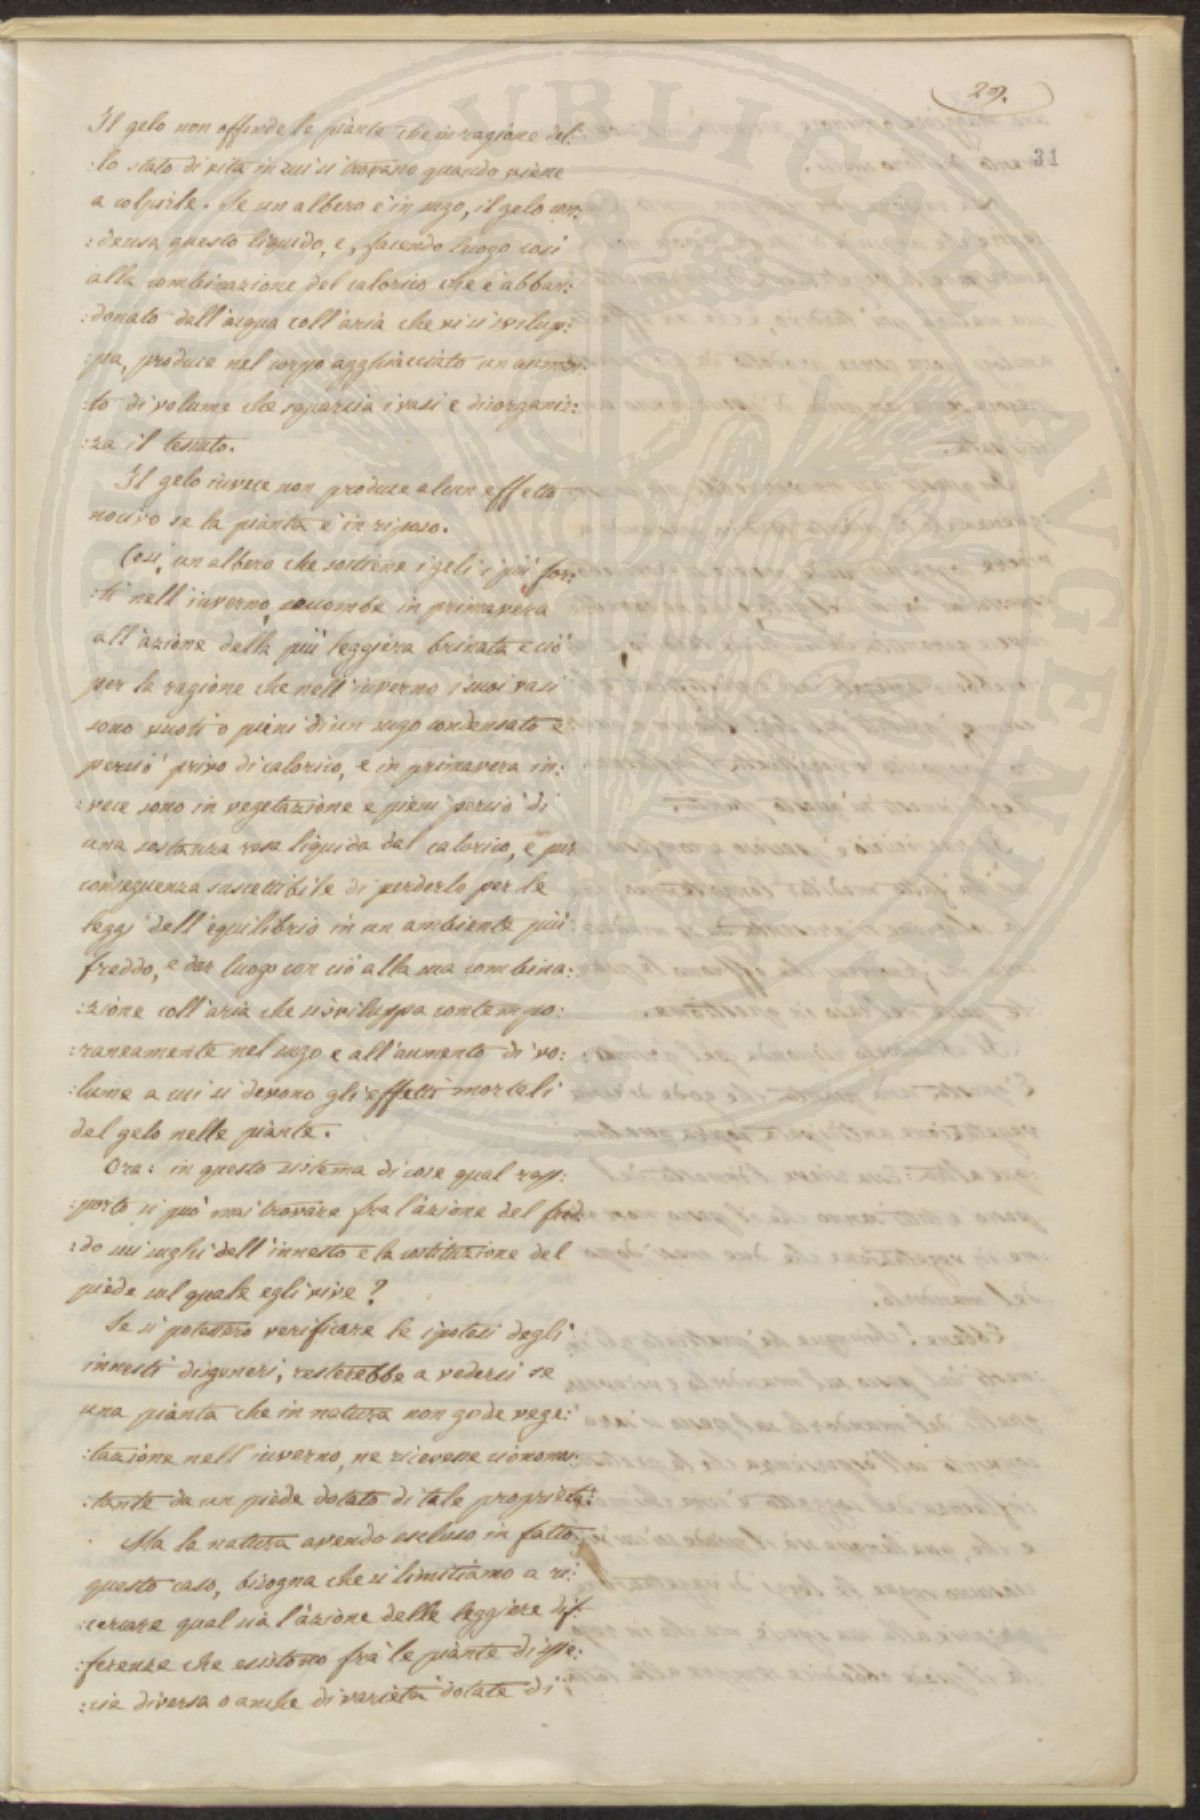 29.
31
Il gelo non offende le piante che in ragione del:
:lo stato di vita in cui si trovano quando viene
a colpirle. Se un albero è in sugo, il gelo con:
:densa questo liquido, e, facendo luogo così
alla combinazione del calorico che è abban:
:donato dall'acqua coll'aria che vi si svilup:
:pa, produce nel corpo agghiacciato un aumen:
:to di volume che squarcia i vasi e disorganiz:
:za il tessuto.
Il gelo invece non produce alcun effetto
nocivo se la pianta è in riposo.
Così, un albero che sostiene i geli i più for:
:ti nell'inverno, soccombe in primavera
all'azione della più leggiera brinata e ciò
per la ragione che nell'inverno i suoi vasi
sono vuoti o pieni di un sugo condensato e
perciò privo di calorico, e in primavera in:
:vece sono in vegetazione e pieni perciò di
una sostanza resa liquida dal calorico, e per
conseguenza suscettibile di perderlo per le
leggi dell'equilibrio in un ambiente più
freddo, e dar luogo con ciò alla sua combina:
:zione coll'aria che si sviluppa contempo:
:raneamente nel sugo e all'aumento di vo:
:lume a cui si devono gli effetti mortali
del gelo nelle piante.
Ora: in questo sistema di cose qual rap:
:porto si può mai trovare fra l'azione del fred:
:do sui sughi dell'innesto e la costituzione del
piede sul quale egli vive?
Se si potessero verificare le ipotesi degli
innesti disgeneri, resterebbe a vedersi se
una pianta che in natura non gode vege:
:tazione nell'inverno, ne ricevesse cionono:
:tante da un piede dotato di tale proprietà:
Ma la natura avendo escluso in fatto
questo caso, bisogna che si limitiamo a ri:
:cercare qual sia l'azione delle leggiere dif:
:ferenze che esistono frà le piante di spe:
:cie diversa o anche di varietà dotate di